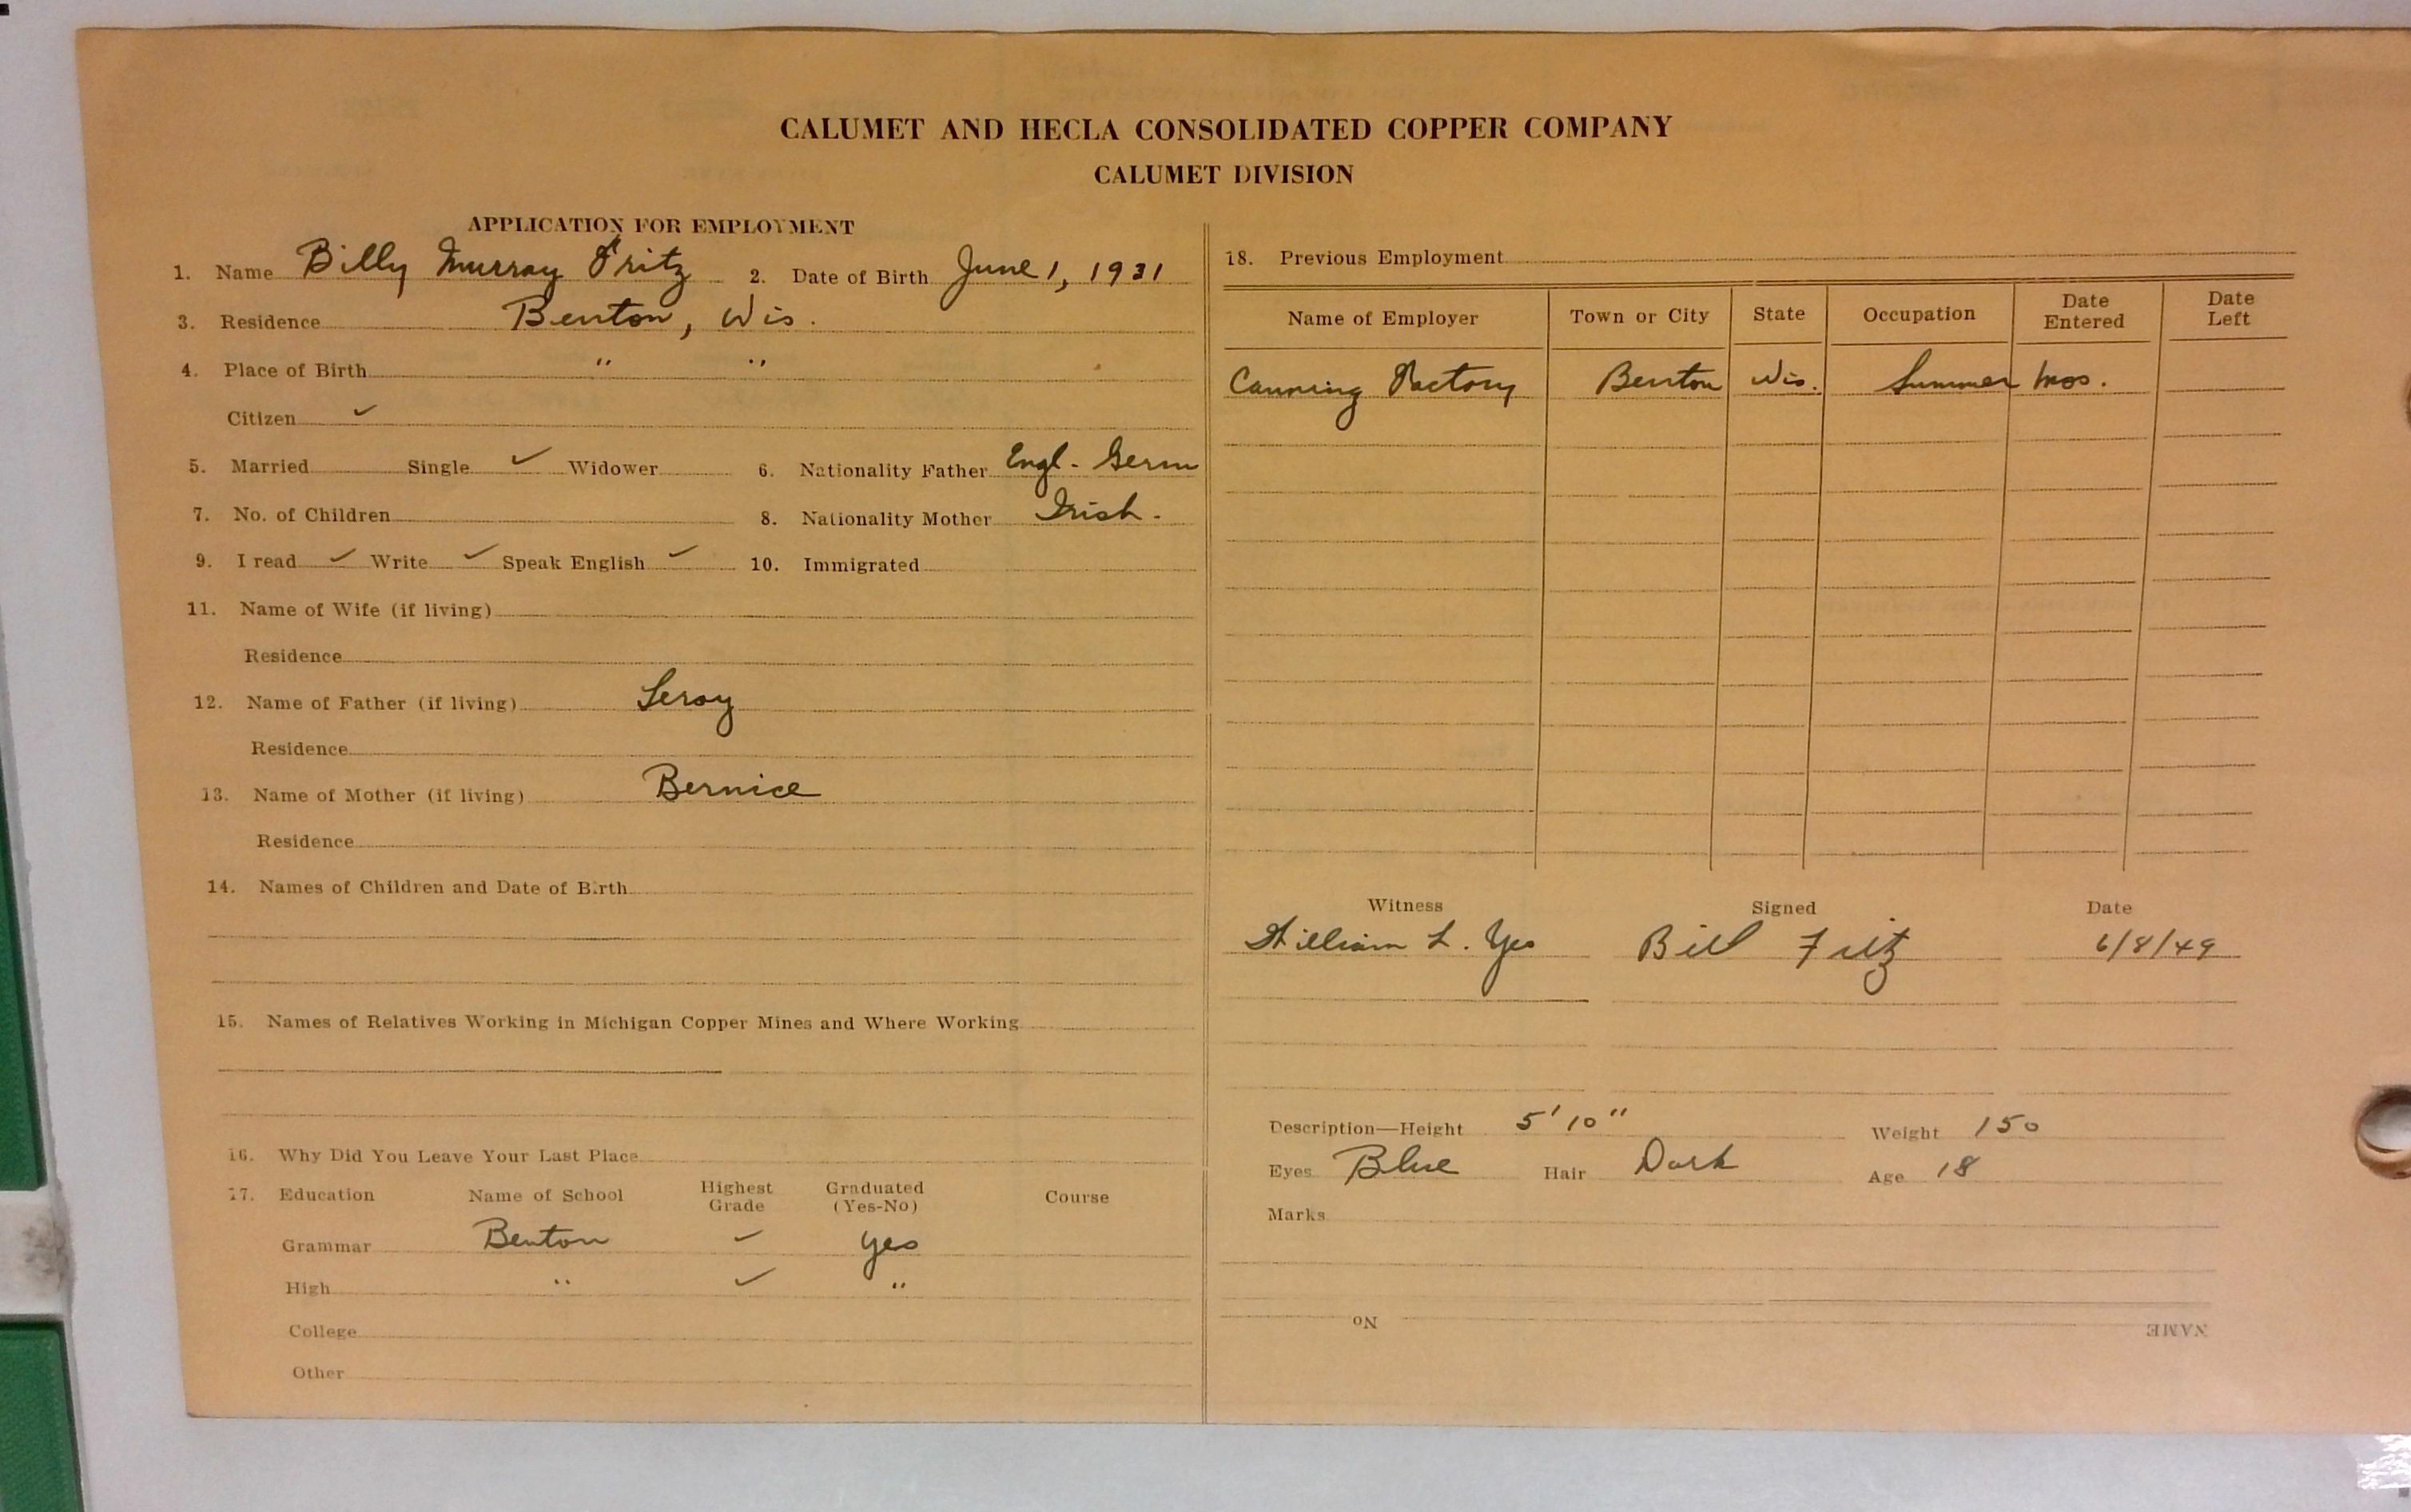 CALUMET AND HECLA CONSOLIDATED COPPER COMPANY
CALUMET DIVISION
APPLICATION FOR EMPLOYMENT
1. Name Billy Murray Fritz 2. Date of Birth June 1, 1931
3. Residence Benton, Wis.
4. Place of Birth " "
Citizen ✓
5. Married Single ✓ Widower 6. Nationality Father Engl - Germ
7. No. of Children 8. Nationality Mother Irish -
9. I read ✓ Write ✓ Speak English ✓ 10. Immigrated
11. Name of Wife (if living)
Residence
12. Name of Father (if living) Leroy
Residence
13. Name of Mother (if living) Bernice
Residence
14. Names of Children and Date of Birth
15. Names of Relatives Working in Michigan Copper Mines and Where Working
16. Why Did You Leave Your Last Place
17. Education Name of School Highest Grade Graduated (Yes-No) Course
Grammar Benton ✓ yes
High " ✓ "
College
Other
18. Previous Employment
Name of Employer Town or City State Occupation Date Entered Date Left
Canning Factory Benton Wis. Summer mos.
Witness Signed Date
William L. Bill Fritz 6/8/49
Description—Height 5' 10" Weight 150
Eyes Blue Hair Dark Age 18
Marks
No
NAME